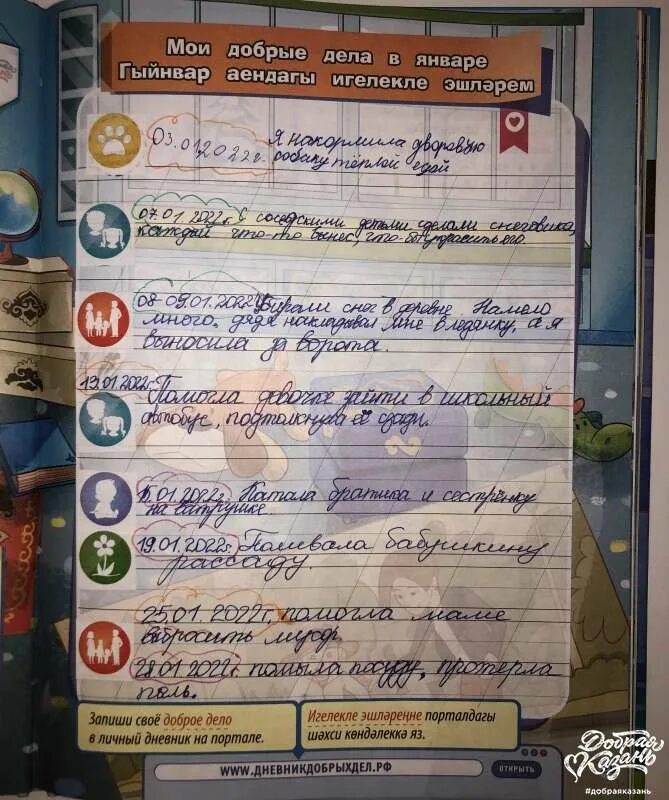 Мои добрые дела в январе
Гыйнвар аендагы игелекле эшләрем
03.01.2022г. Я накормила дворовую
собаку тёплой едой
07.01.2022г. С соседскими детьми сделали снеговика,
каждый что-то вынес, что-бы украсить его.
08-09.01.2022г. Убирали снег в деревне. Намело
много. дядя накладывал мне в ледянку, а я
выносила за ворота.
13.01.2022г. Помогла девочке зайти в школьный
автобус, подтолкнула её сзади.
15.01.2022г. Катала братика и сестрёнку
на ватрушке.
19.01.2022г. Поливала бабушкину
рассаду.
25.01.2022г. помогла маме
выбросить мусор.
28.01.2022г. помыла посуду, протёрла
поль.
Запиши своё доброе дело
в личный дневник на портале.
Игелекле эшләреңне порталдагы
шәхси көндәлеккә яз.
WWW.ДНЕВНИКДОБРЫХДЕЛ.РФ
ОТКРЫТЬ
Добрая
Казань
#добраяказань